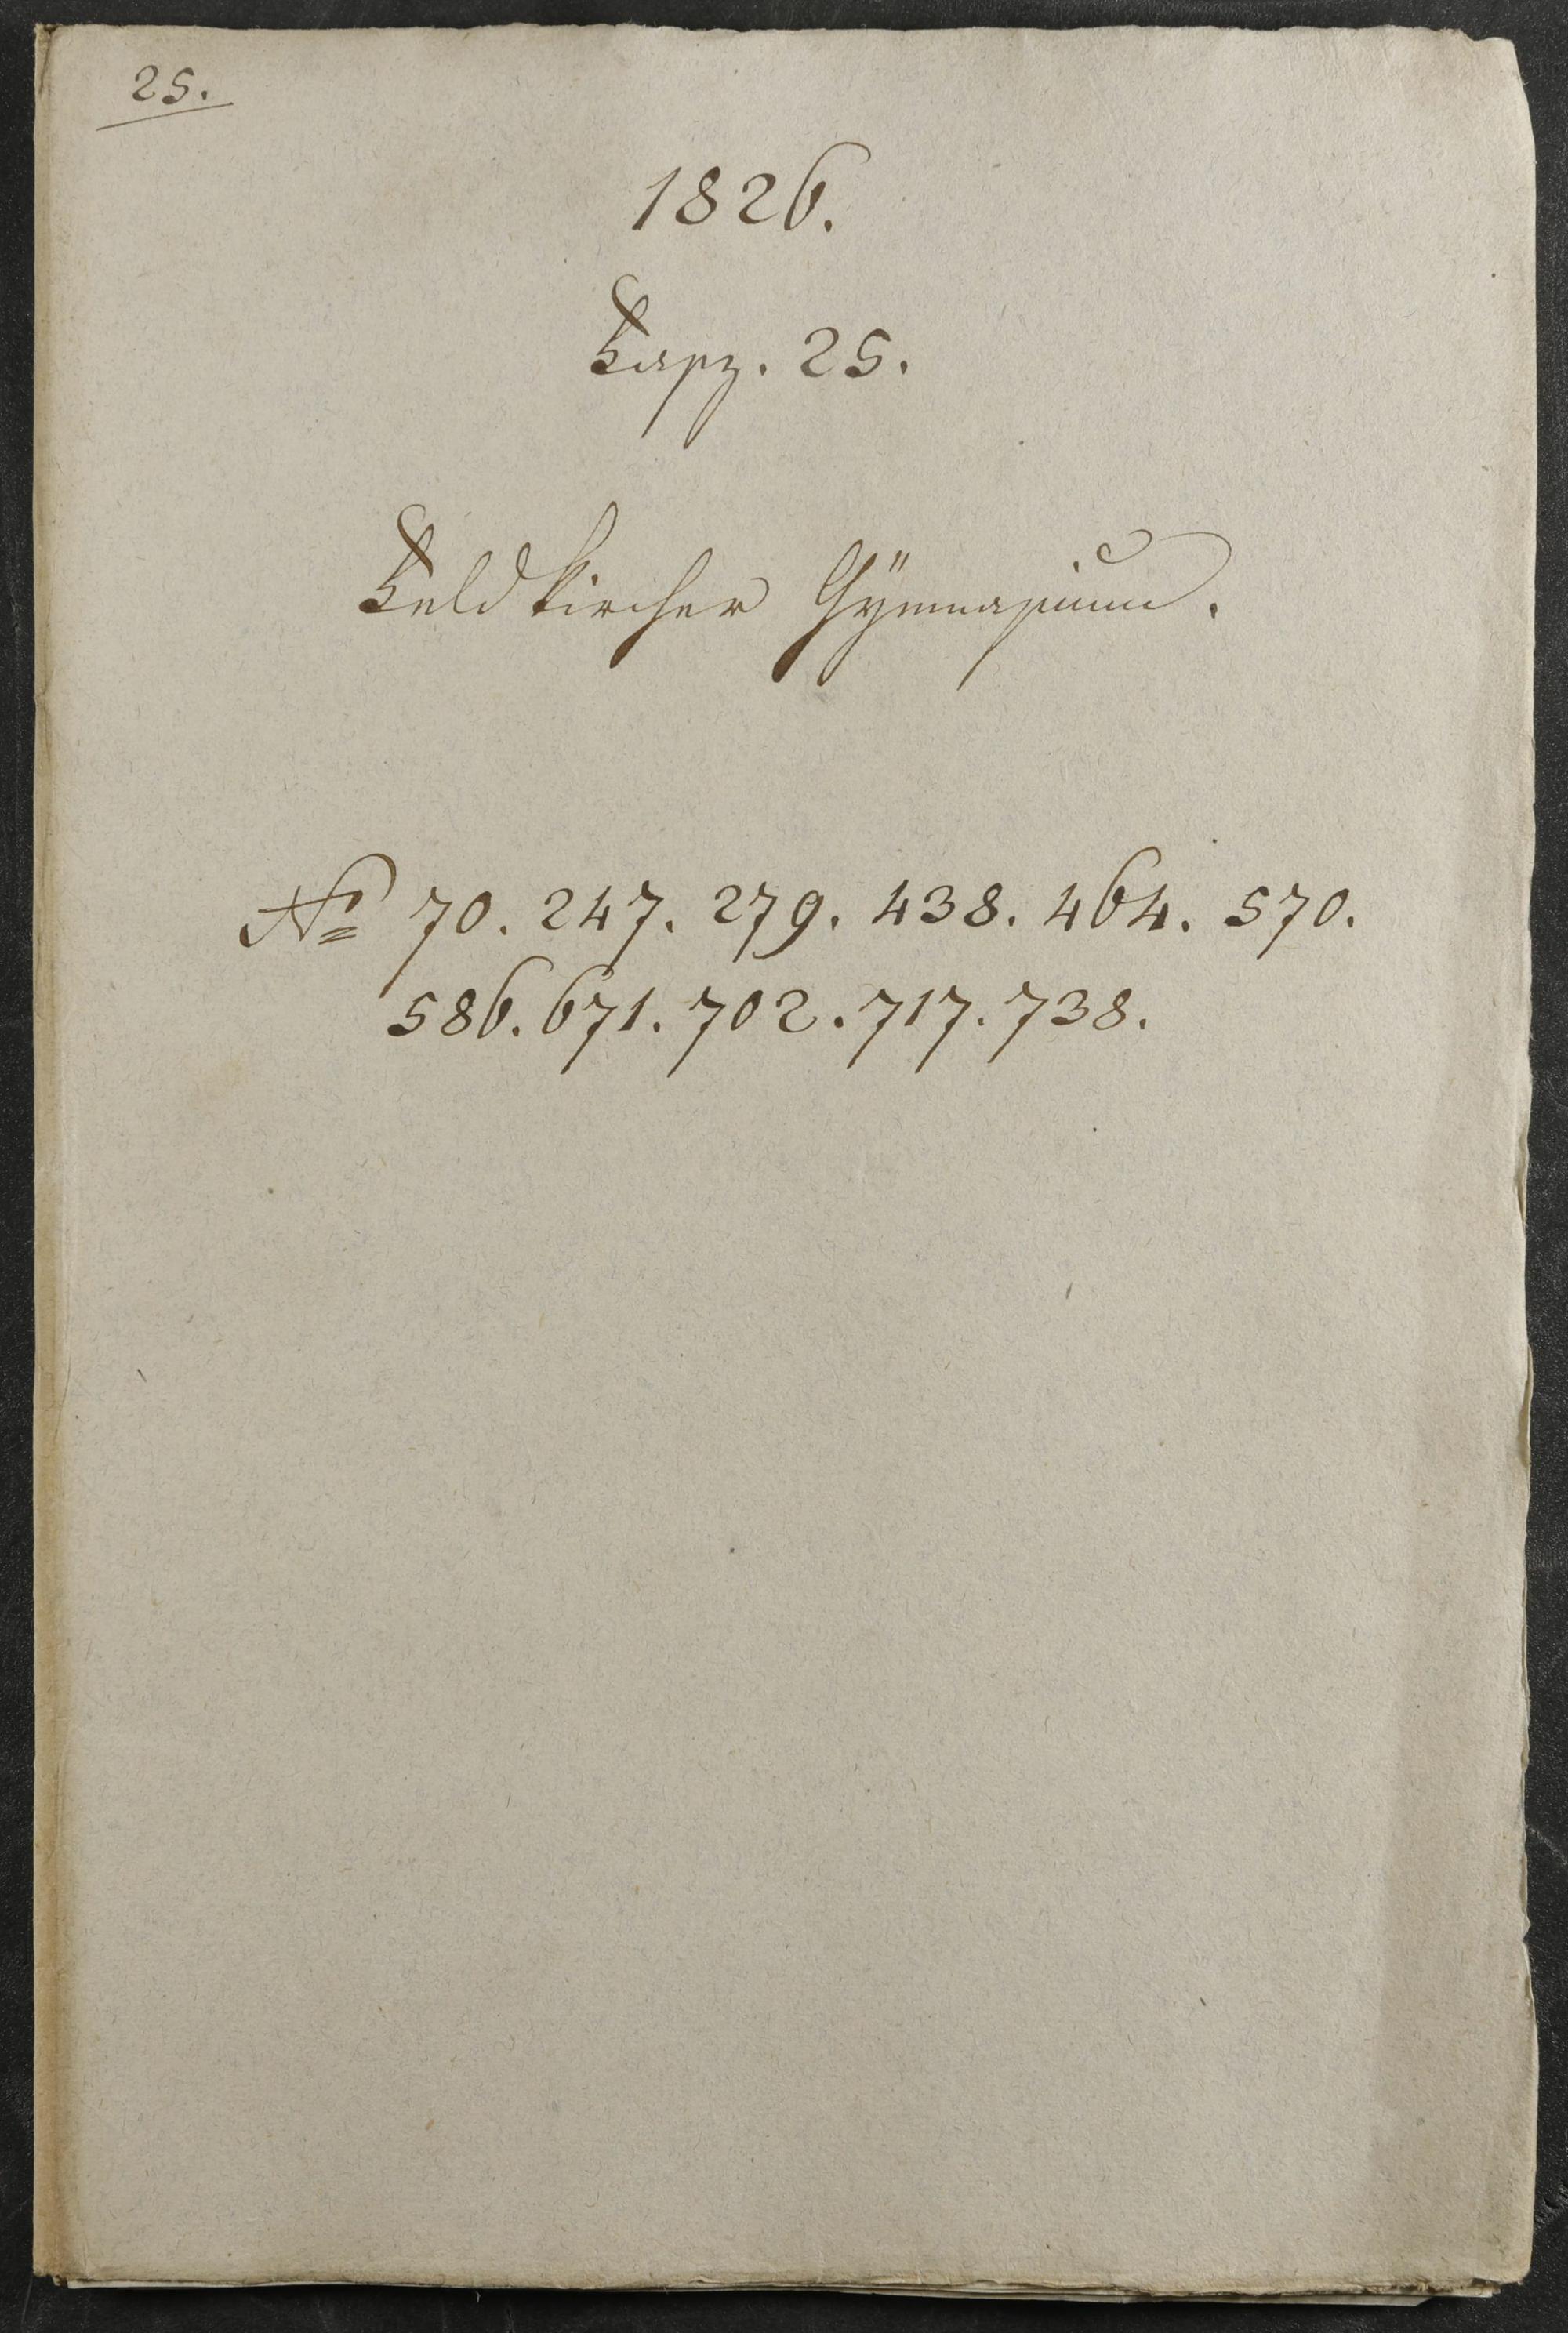 25.
1826.
Fasz. 25.
Feldkircher Gÿmnasium.
No 70. 247. 279. 438. 464. 570.
586. 671. 702. 717. 738.